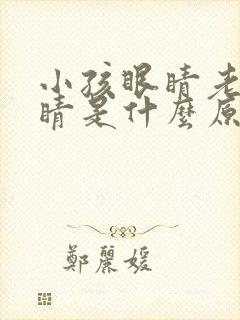 小孩眼睛老
睛是什麼原
鄭麗媛